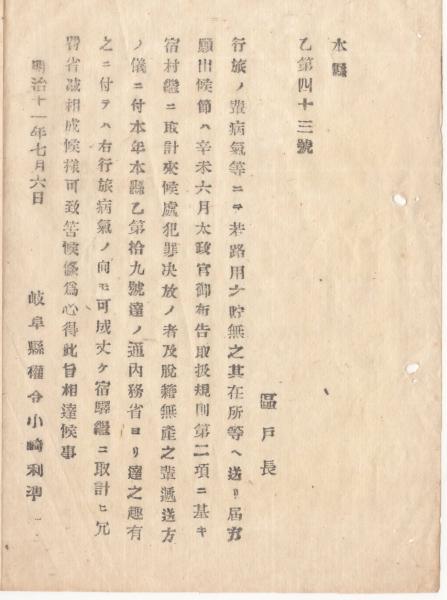 本縣
乙第四十三號
區戸長
行旅ノ輩病氣等ニテ若路用ノ貯無之其在所等ヘ送リ届方
願出候節ハ辛未六月太政官御布告取扱規則第二項ニ基キ
宿村繼ニ取計來候處犯罪决放ノ者及脱籍無產之輩遞送方
ノ儀ニ付本年本縣乙第拾九號達ノ通内務省ヨリ達之趣有
之ニ付テハ右行旅病氣ノ向モ可成丈ケ宿驛繼ニ取計ヒ冗
費省减相成候樣可致筈候條爲心得此旨相達候事
明治十一年七月六日
岐阜縣權令小崎利準